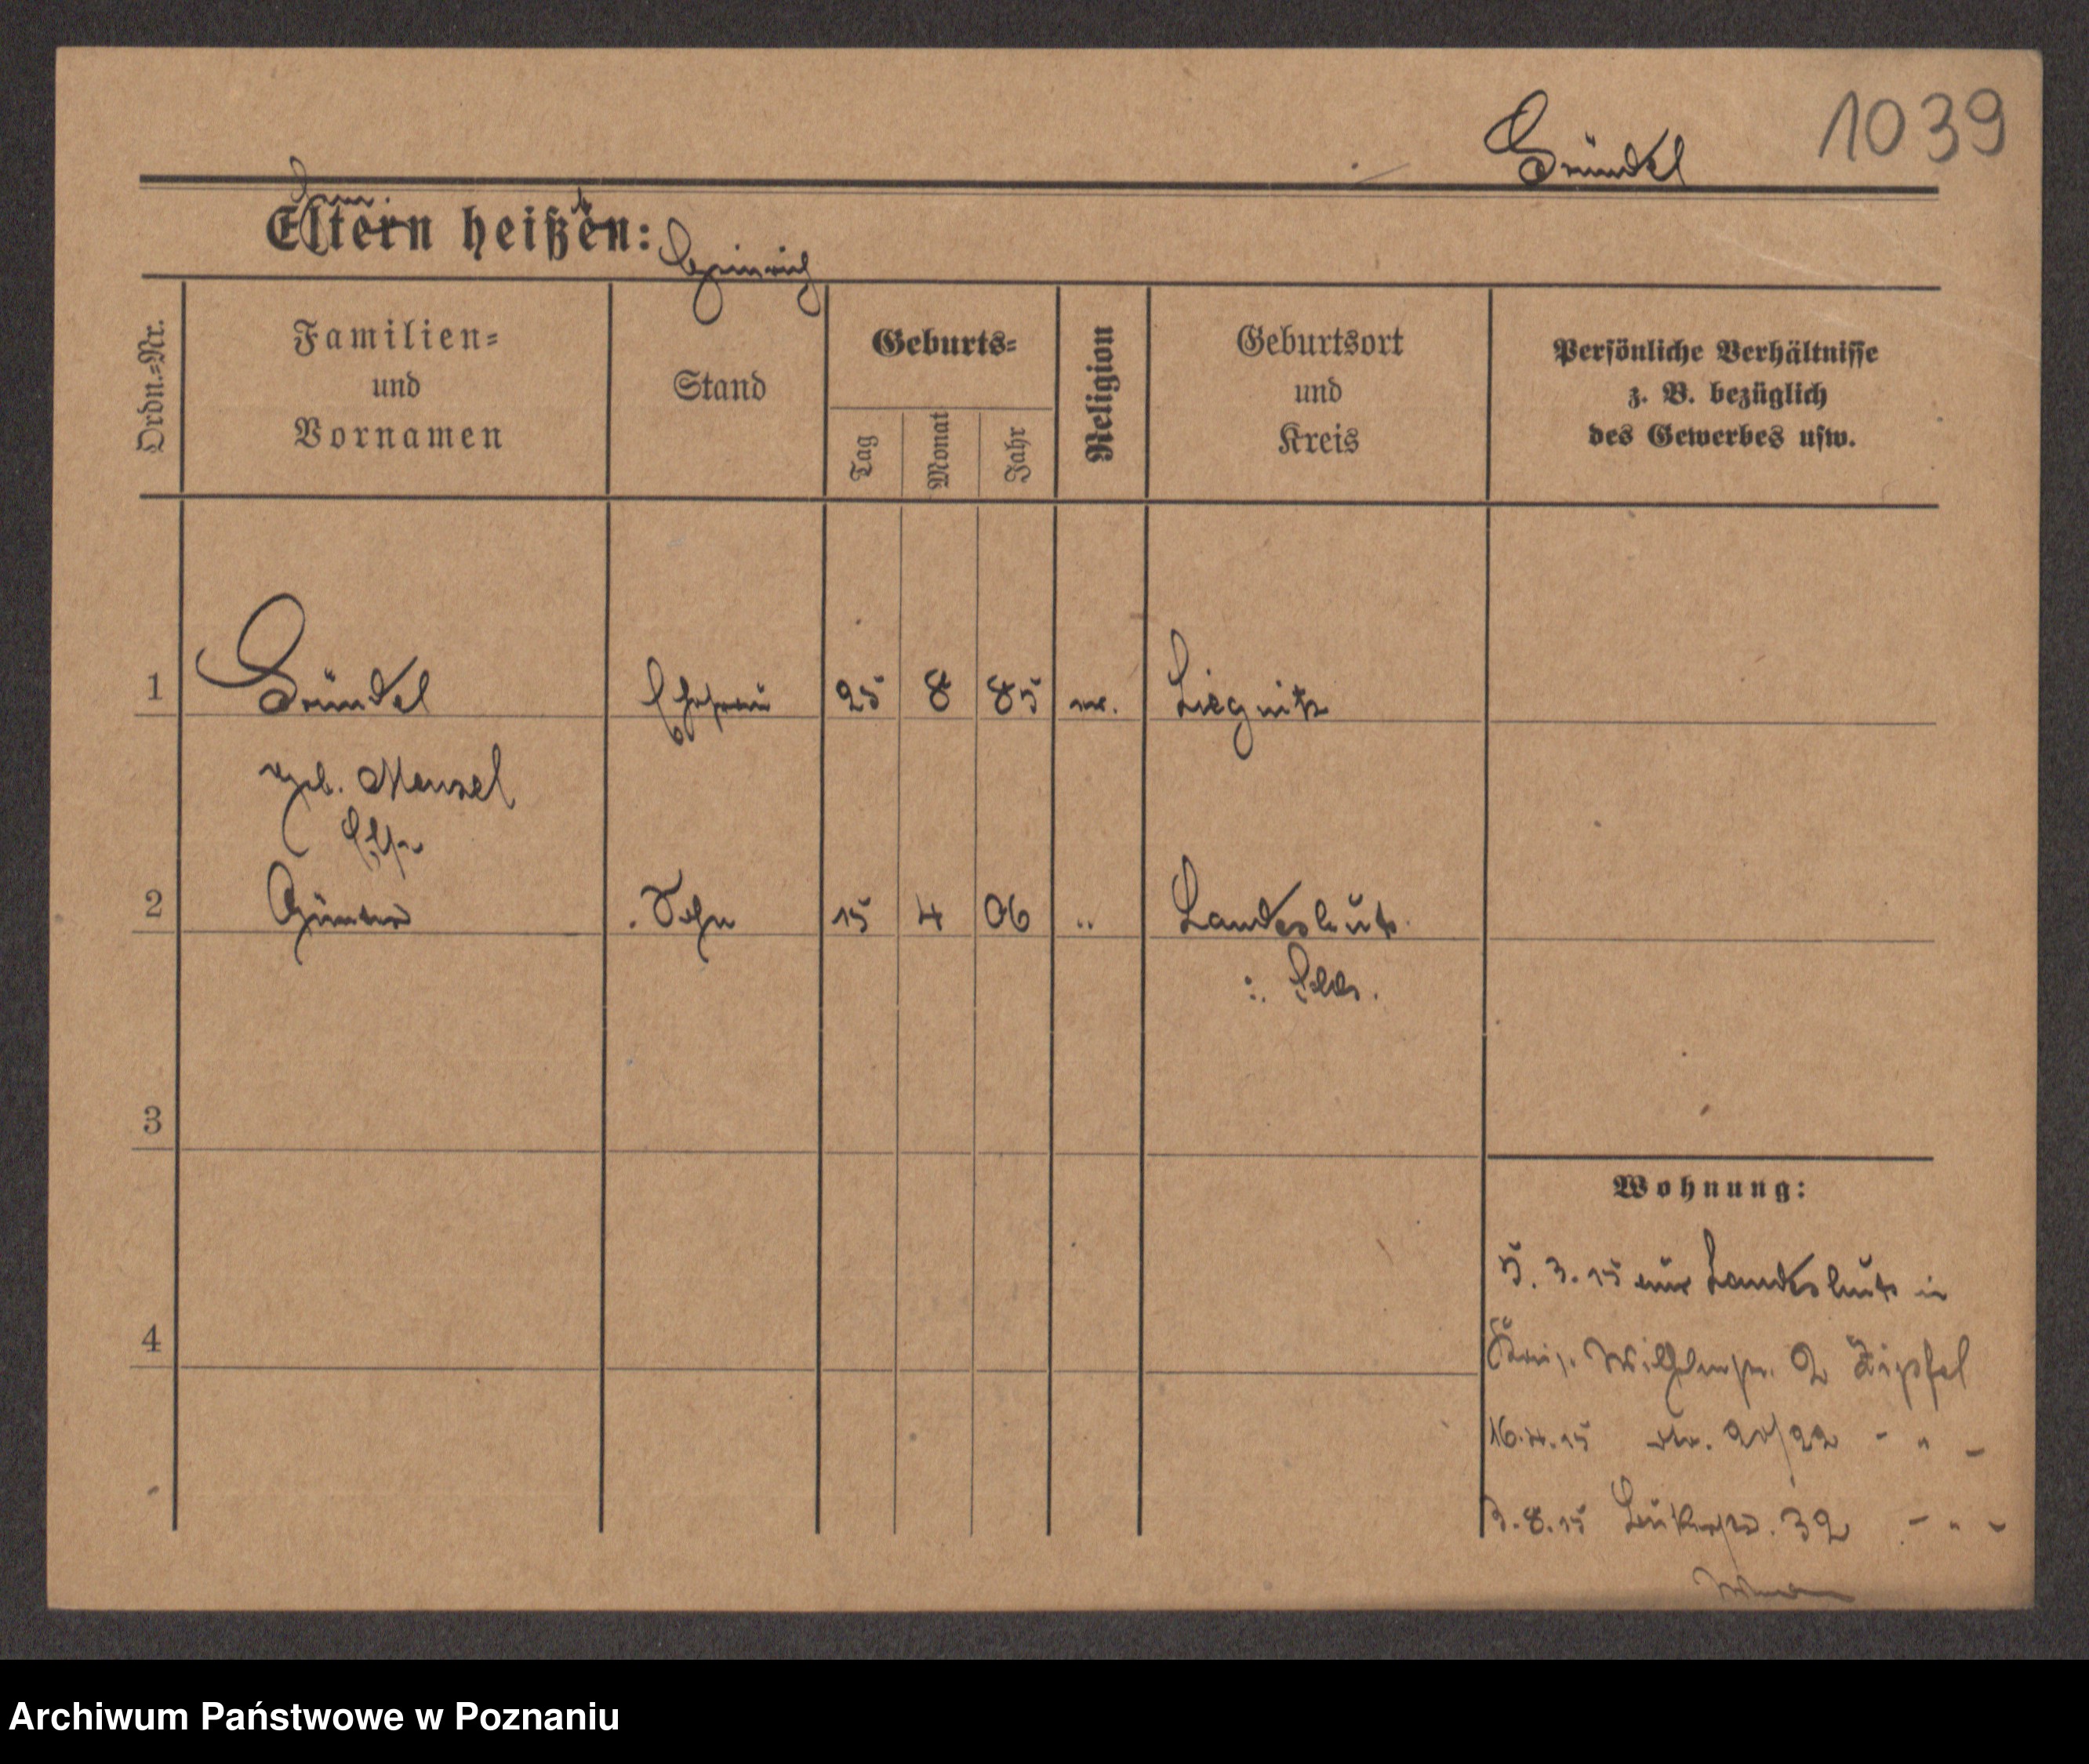 1039
Gründel
Eltern heißen:
Heinrich
Ordn.-Nr.
Familien-
und
Vornamen
Stand
Geburts-
Tag
Monat
Jahr
Religion
Geburtsort
und
Kreis
Persönliche Verhältnisse
z. B. bezüglich
des Gewerbes usw.
1 Gründel Ehefrau 25 8 85 ev. Liegnitz
geb. Menzel
Else
2 Günter Sohn 15 4 06 " Landeshut
i. Schles.
3
Wohnung:
5. 3. 15 aus Landeshut in
4
Wilhelmstr. 2 Zipfel
16.4.15 dto. 20/22 - " -
3.8.15 32 - " -
Archiwum Państwowe w Poznaniu